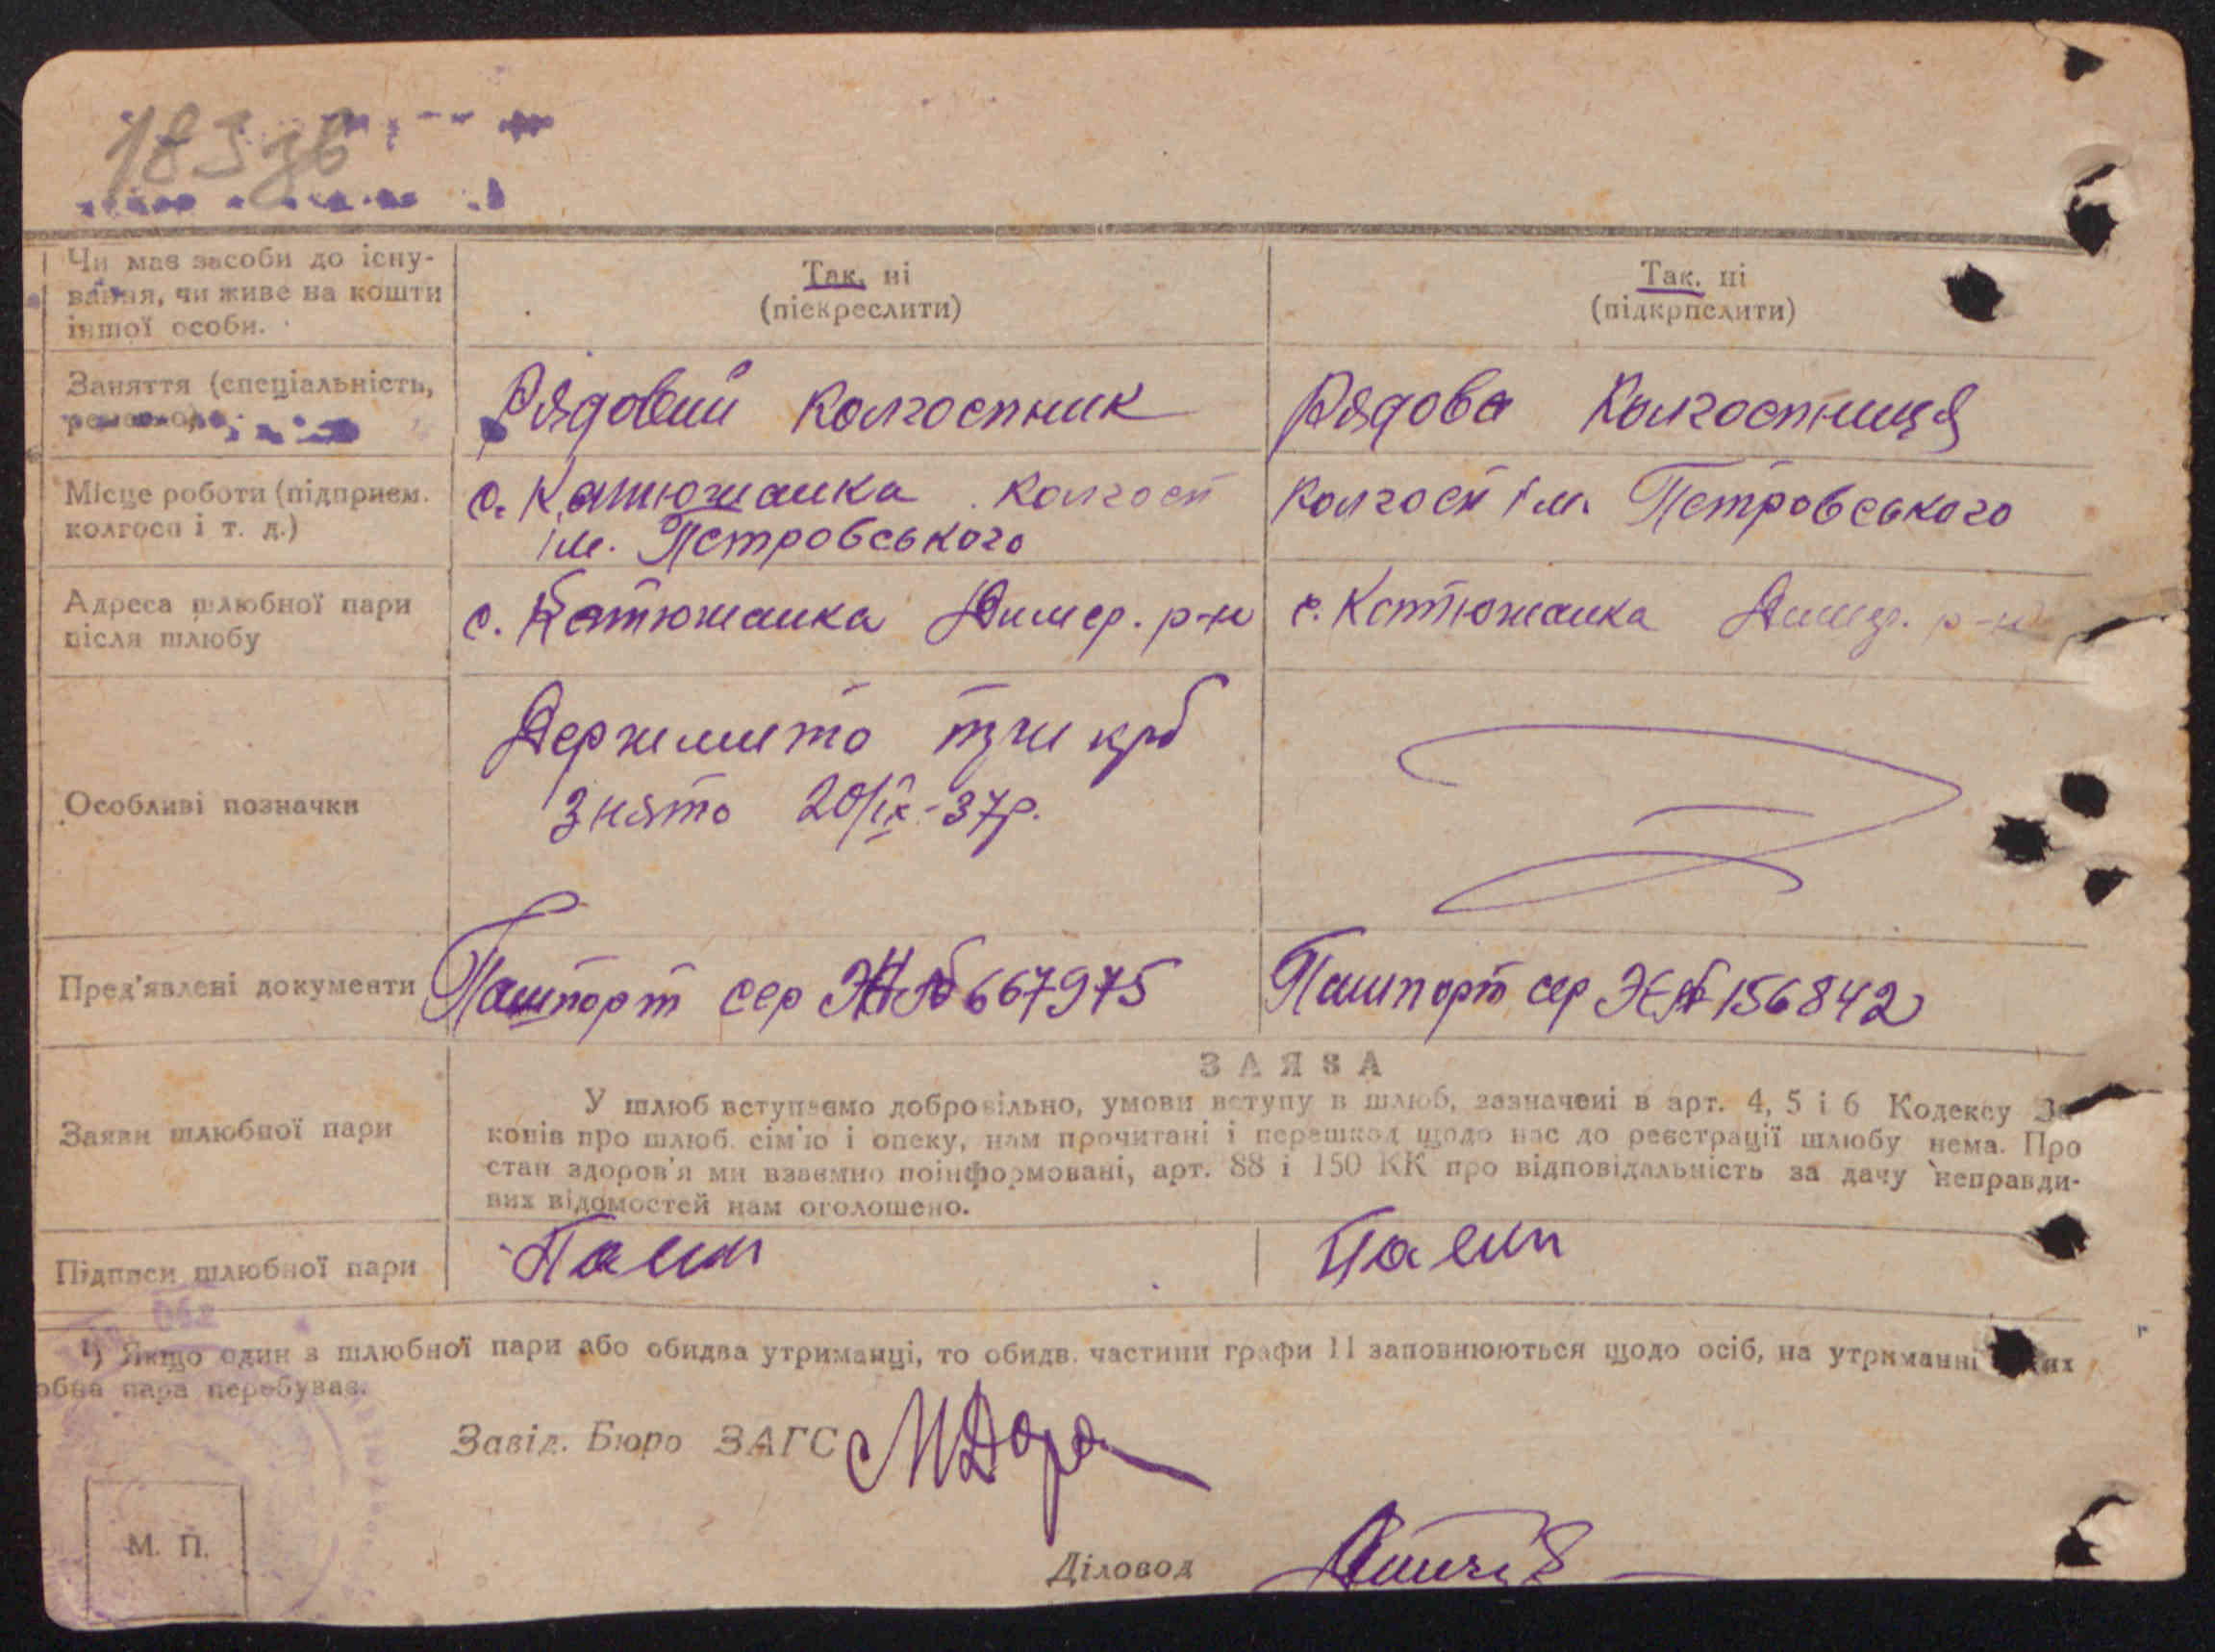 183 зв
Чи має засоби до існу-
вання, чи живе на кошти
іншої особи.
Так, ні
(піскреслити)
Так, ні
(підкрпслити)
Заняття (спеціальність,
ремесло)
Рядовий колгоспник
Рядова колгоспниця
Місце роботи (підприєм.
колгосп і т. д.)
с. Катюжанка колгосп
ім. Петровського
колгосп ім. Петровського
Адреса шлюбної пари
після шлюбу
с. Катюжанка Димер. р-н
с. Катюжанка Димер. р-н
Особливі позначки
Держмито три крб
знято 20/ІХ-37р.
Пред'явлені документи
Пашпорт сер ЖЯ № 667975
Пашпорт сер ЭЄ № 156842
Заяви шлюбної пари
ЗАЯЗА
У шлюб вступаємо добровільно, умови вступу в шлюб, зазначені в арт. 4, 5 і 6 Кодексу За
конів про шлюб. сім'ю і опеку, нам прочитані і перешкод щодо нас до реєстрації шлюбу нема. Про
стан здоров'я ми взаємно поінформовані, арт. 88 і 150 КК про відповідальність за дачу неправди-
вих відомостей нам оголошено.
Підписи шлюбної пари
¹) Якщо один з шлюбної пари або обидва утриманці, то обидв. частини графи 11 заповнюються щодо осіб, на утриманні их
обна пара перебуває.
Завід. Бюро ЗАГС
М. П.
Діловод